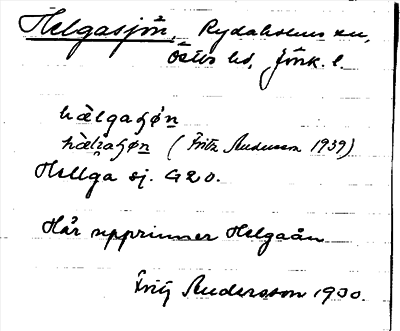 Helgasjön, Rydaholms sn,
Östbo hd, Jönk. l.
hælgaʃøn
hæliaʃøn (Fritz Andersson 1939)
Hellga sj. G20.
Här upprinner Helgaån
Fritz Andersson 1930.